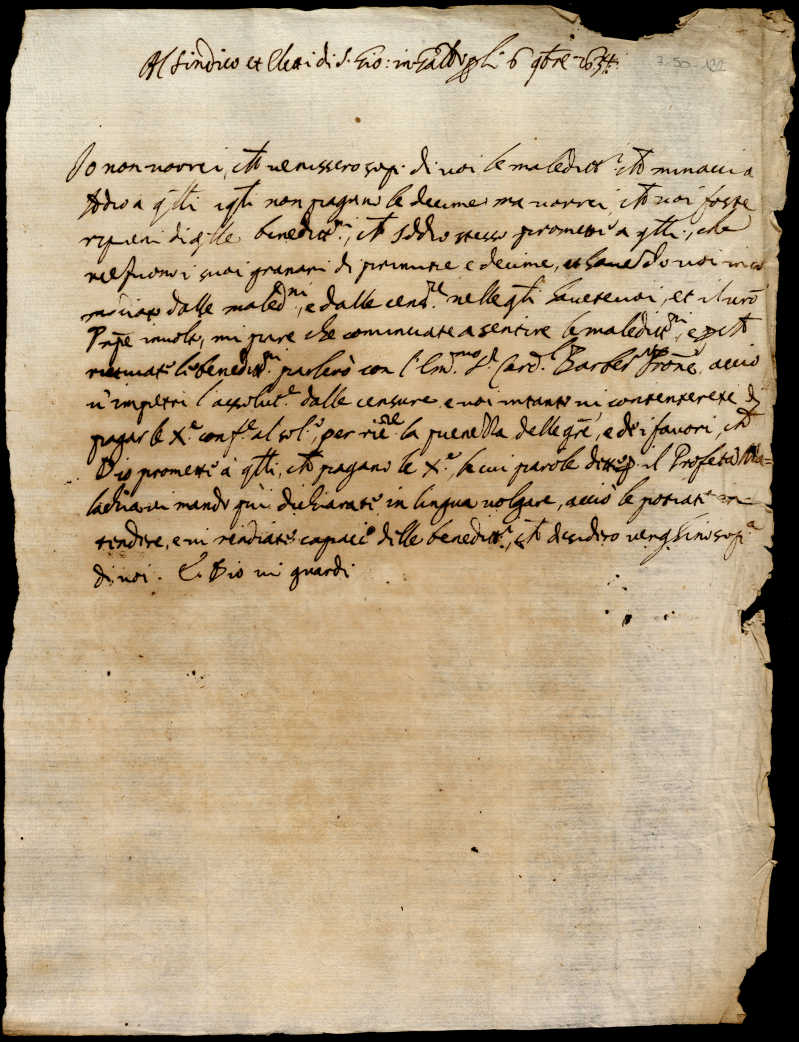 Al Sindico et Eletti di S. Gio: in Galdo li 6 9bre
7-50-132
Io non vorrei, ch venissero sop.ª di voi le maleditt.ni ch minaccia
Iddio a q̃lli i q̃li non pagano le decime ma vorrei, ch voi foste
ripieni di q̃lle beneditt.ni, ch Iddio stesso promette a q̃lli, che
nelli suoi granari di primitie e decime, et havendo voi
dalle maled.ni, e dalle cens.re nelle q̃li havete voi, et il vrõ
involti, mi pare che cominciate a sentire le maleditt.ni, e
le beneditt.ni parlerò con l'Em.mo S.r Card. Barber.no Prone, acciò
v'impetri l'assolut.e dalle censure, e voi intanto vi contenterete di
pagar le X.e conf.e al sol.o, per la pienezza delle grẽ, e de i favori, ch
Dio promette à q̃lli, ch pagano le X.e, le cui parole il Profeta Ma=
lachia vi mando qui dichiarate in lingua volgare, acciò le potiate in
tendere, e vi rendiate capaci delle beneditt.ni, ch desidero venghino sop.ª
di voi. E Dio vi guardi